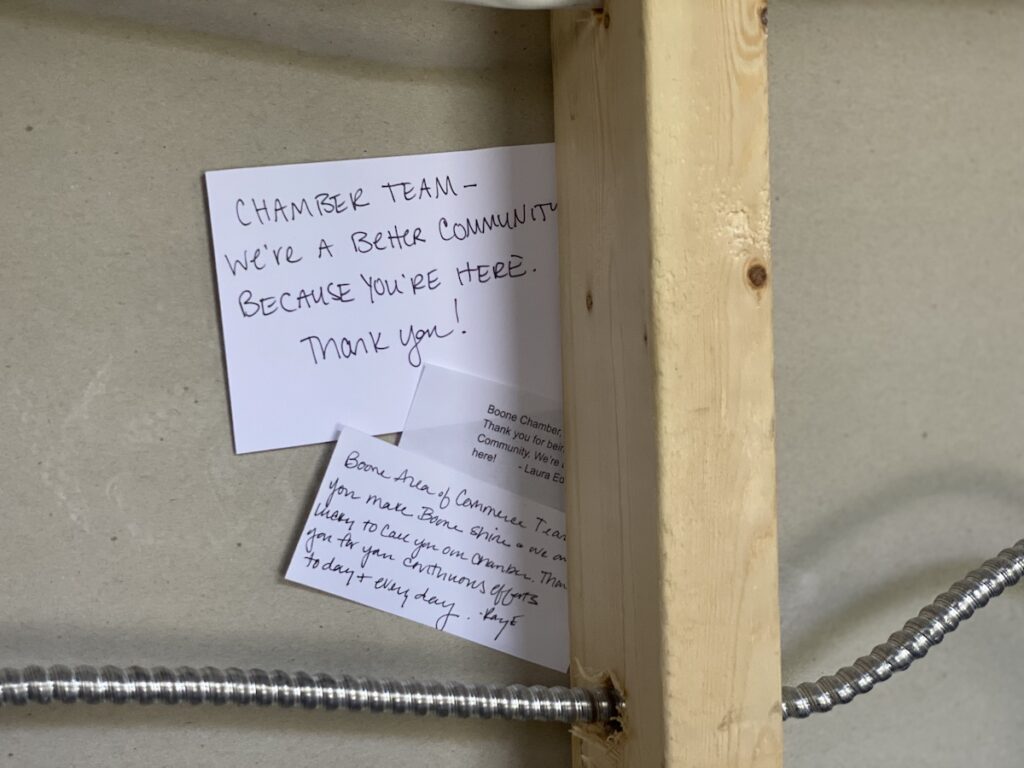 CHAMBER TEAM -
We're A Better COMMUNITY
BECAUSE YOU'RE HERE.
Thank you!
Boone Chamber
Thank you for bein
Community. We're
here! - Laura Ed
Boone Area of Commerce Team
you make Boone shine + we are
lucky to call you our chamber. Than
you for your continuous efforts
today + every day. -Kaye